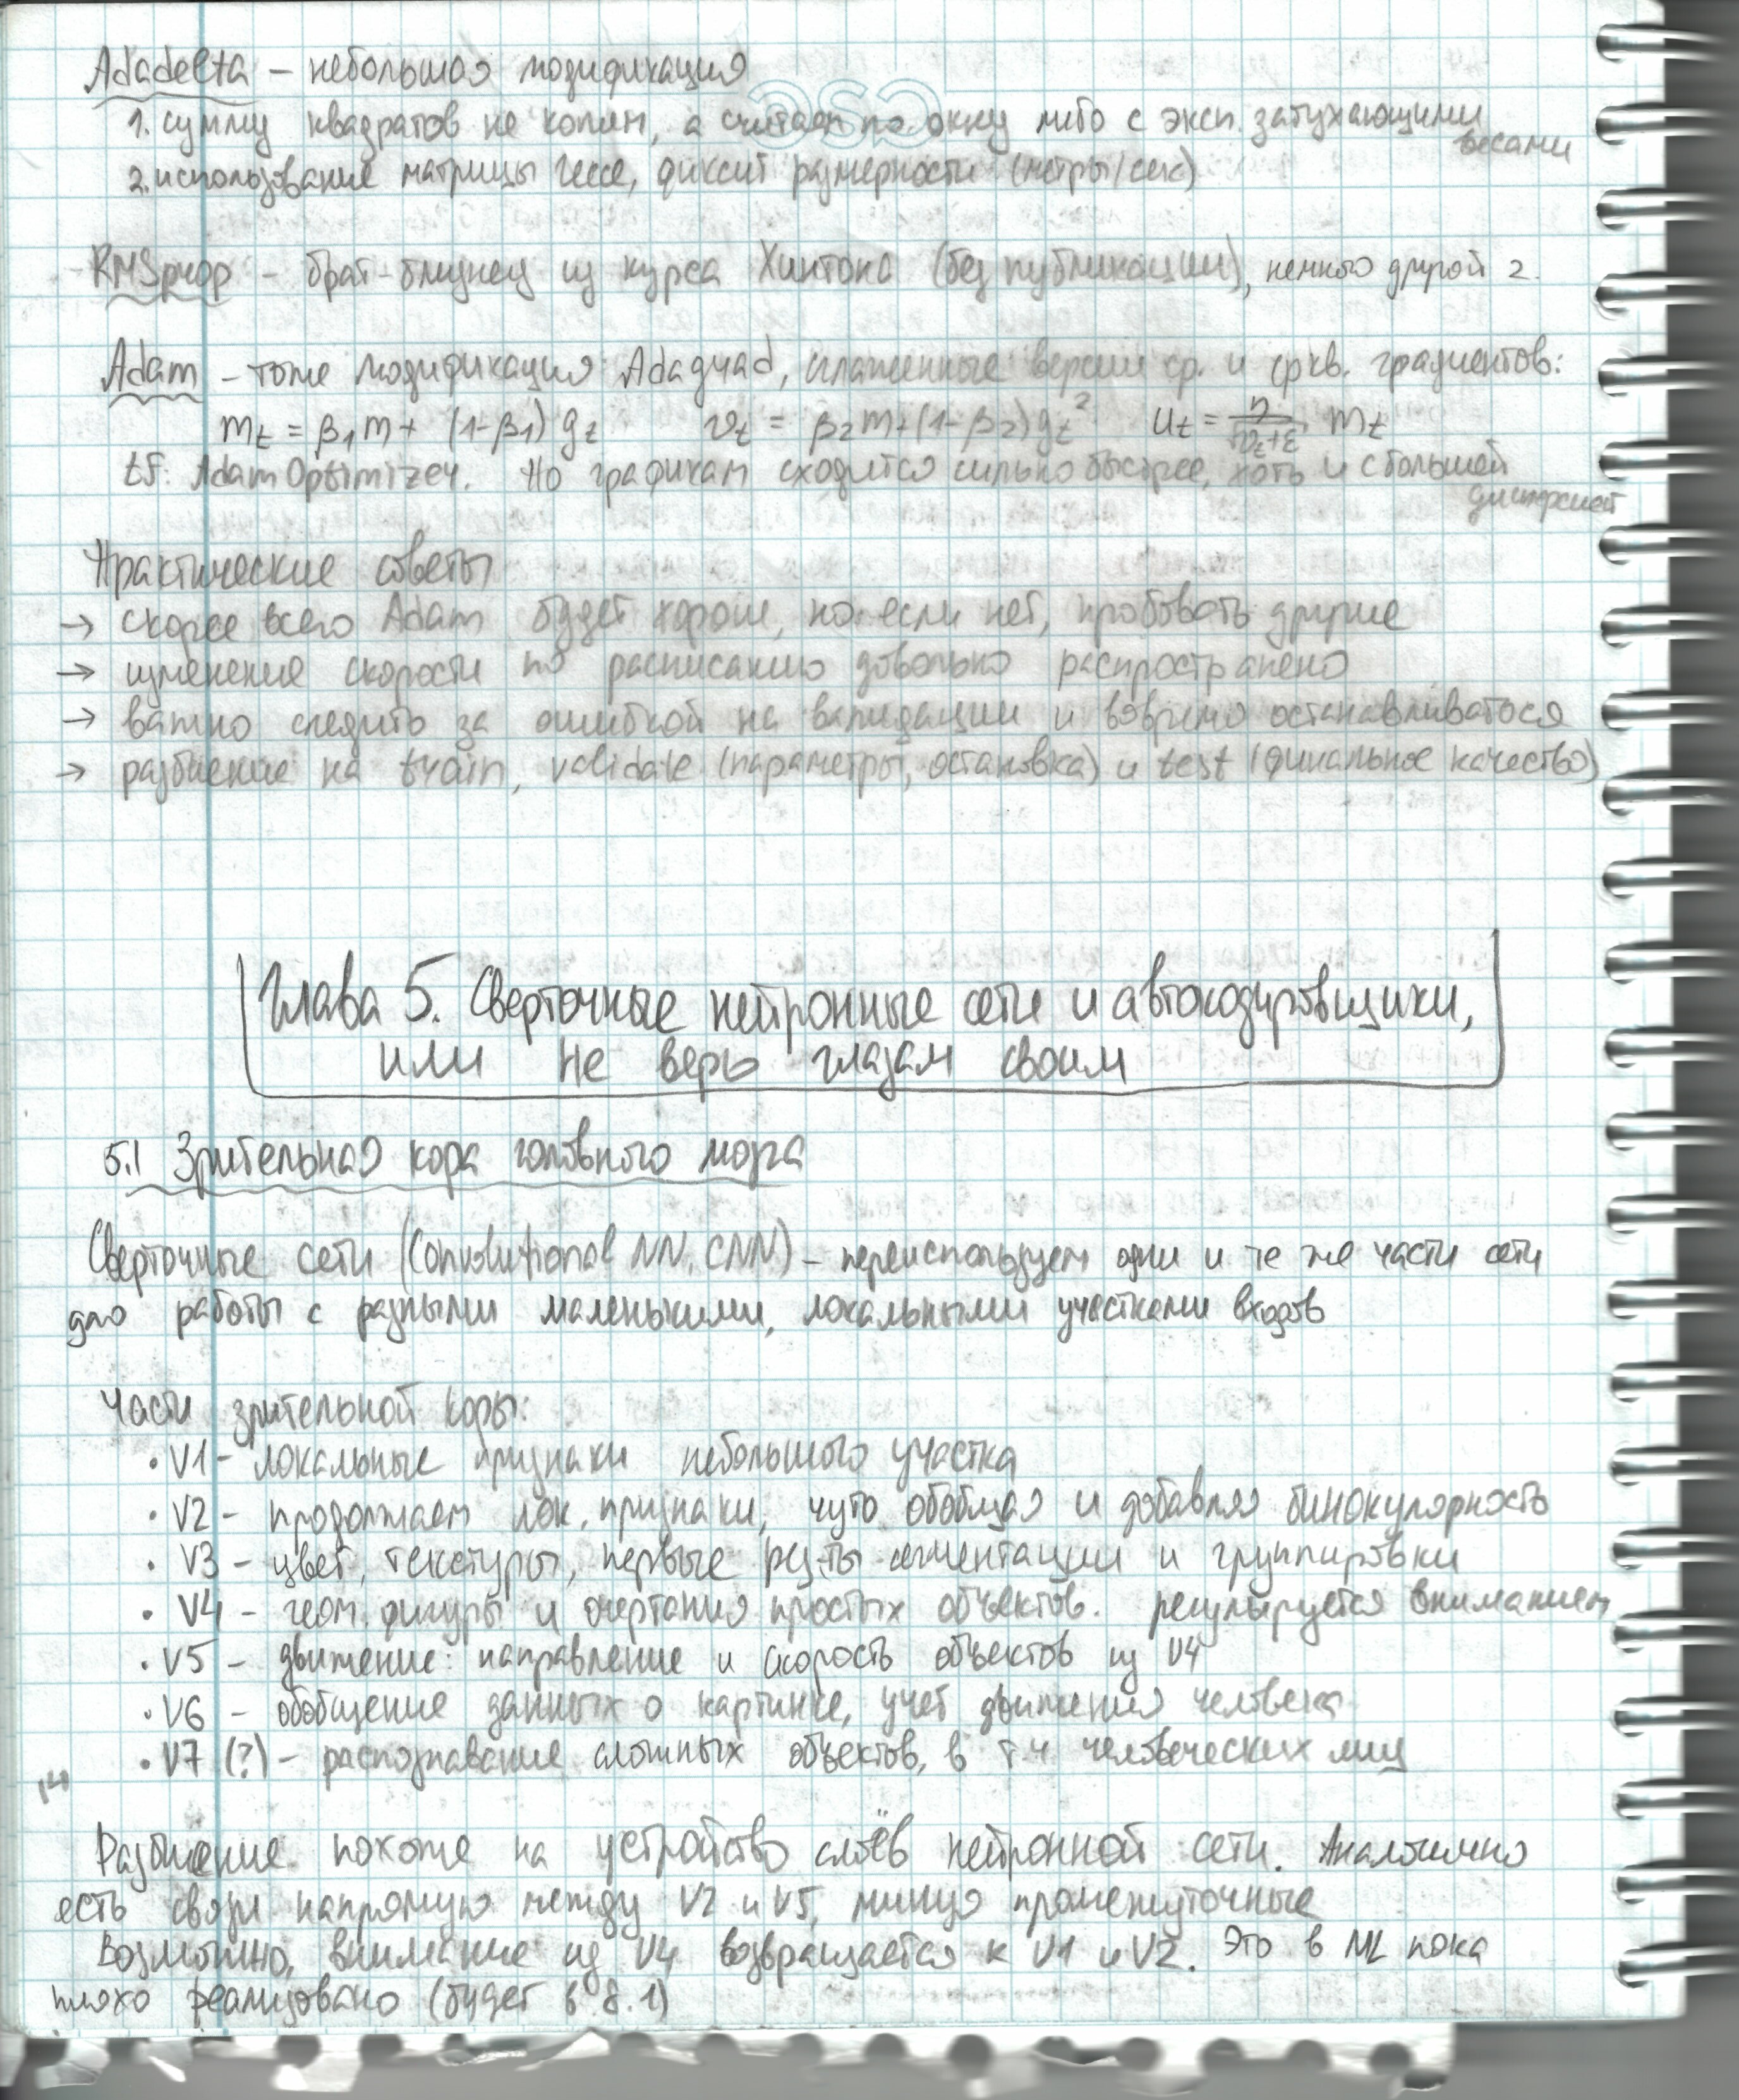 Adadelta – небольшая модификация
1. сумму квадратов не копим, а считаем по окну либо с эксп. затухающими весами
2. использование матрицы Гессе, фиксит размерности (метры/сек)
RMSprop – брат-близнец из курса Хинтона (без публикации), немного другой 2.
Adam – тоже модификация Adagrad, сглаженные версии ср. и ср.кв. градиентов:
m_t = β₁m + (1-β₁) g_t   v_t = β₂m + (1-β₂) g_t²   u_t = η/√(v_t+ε) m_t
tf: AdamOptimizer. По графикам сходится сильно быстрее, хоть и с большей дисперсией
Практические советы
→ скорее всего Adam будет хорош, но если нет, пробовать другие
→ изменение скорости по расписанию довольно распространено
→ важно следить за ошибкой на валидации и вовремя останавливаться
→ разбиение на train, validate (параметры, остановка) и test (финальное качество)
Глава 5. Сверточные нейронные сети и автокодировщики,
или не верь глазам своим
5.1 Зрительная кора головного мозга
Сверточные сети (Convolutional NN, CNN) – переиспользуем одни и те же части сети
для работы с разными маленькими, локальными участками входов
Части зрительной коры:
• V1 – локальные признаки небольшого участка
• V2 – продолжаем лок. признаки, чуть обобщая и добавляя бинокулярность
• V3 – цвет, текстуры, первые рез-ты сегментации и группировки
• V4 – геом. фигуры и очертания простых объектов. регулируется вниманием
• V5 – движение: направление и скорость объектов из V4
• V6 – обобщение данных о картинке, учет движения человека
• V7 (?) – распознавание сложных объектов, в т.ч человеческих лиц
14
Разбиение похоже на устройство слоёв нейронной сети. Аналогично
есть связи напрямую между V2 и V5, минуя промежуточные
Возможно, внимание из V4 возвращается к V1 и V2. Это в ML пока
плохо реализовано (будет в 8.1)